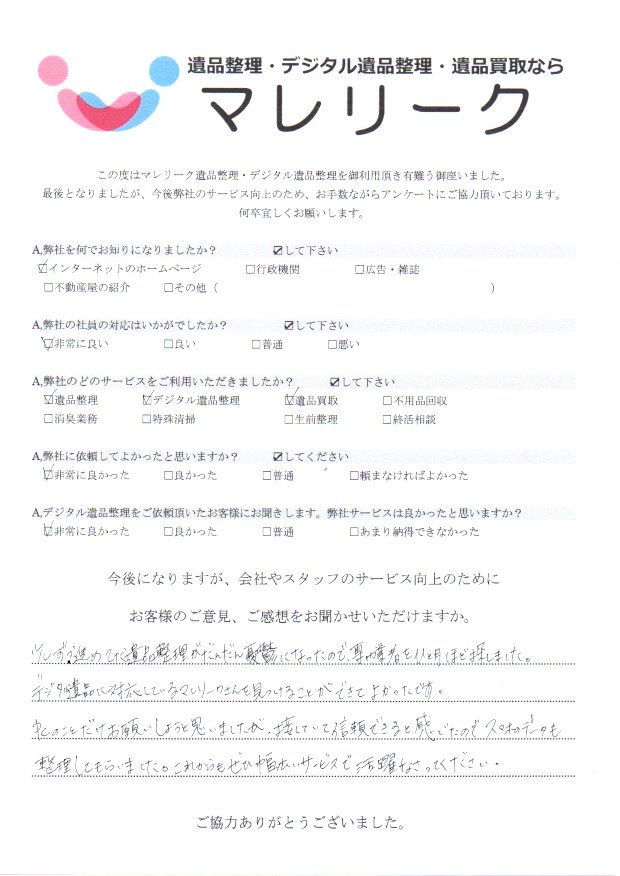 遺品整理・デジタル遺品整理・遺品買取なら
マレリーク
この度はマレリーク遺品整理・デジタル遺品整理を御利用頂き有難う御座いました。
最後となりましたが、今後弊社のサービス向上のため、お手数ながらアンケートにご協力頂いております。
何卒宜しくお願いします。
A,弊社を何でお知りになりましたか？ ☑して下さい
☑インターネットのホームページ □行政機関 □広告・雑誌
□不動産屋の紹介 □その他（ ）
A,弊社の社員の対応はいかがでしたか？ ☑して下さい
☑非常に良い □良い □普通 □悪い
A,弊社のどのサービスをご利用いただきましたか？ ☑して下さい
☑遺品整理 ☑デジタル遺品整理 ☑遺品買取 □不用品回収
□消臭業務 □特殊清掃 □生前整理 □終活相談
A,弊社に依頼してよかったと思いますか？ ☑してください
☑非常に良かった □良かった □普通 □頼まなければよかった
A,デジタル遺品整理をご依頼頂いたお客様にお聞きします。弊社サービスは良かったと思いますか？
☑非常に良かった □良かった □普通 □あまり納得できなかった
今後になりますが、会社やスタッフのサービス向上のために
お客様のご意見、ご感想をお聞かせいただけますか。
少しずつ進めてた遺品整理がだんだん憂鬱になったので、専門業者を1ヶ月ほど探しました。
デジタル遺品に対応しているマレリークさんを見つけることができてよかったです。
PCのことだけお願いしようと思いましたが、接していて信頼できると感じたのでスマホのデータも
整理してもらいました。これからもぜひ幅広いサービスで活躍なさってください。
ご協力ありがとうございました。